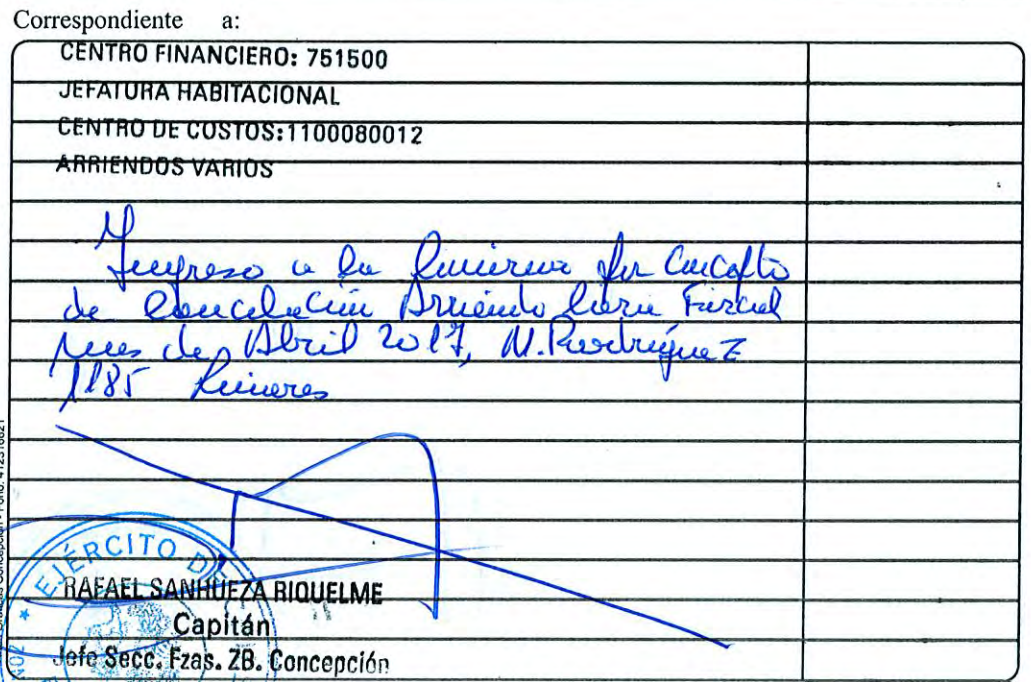 Correspondiente a:
CENTRO FINANCIERO: 751500
JEFATURA HABITACIONAL
CENTRO DE COSTOS:1100080012
ARRIENDOS VARIOS
Ingreso a la por Concepto
de Cancelación Arriendo Fiscal
mes de Abril 2017, M. Rodríguez
1185 Linares
EJÉRCITO D
RAFAEL SANHUEZA RIQUELME
Capitán
Jefe Secc. Fzas. ZB. Concepción